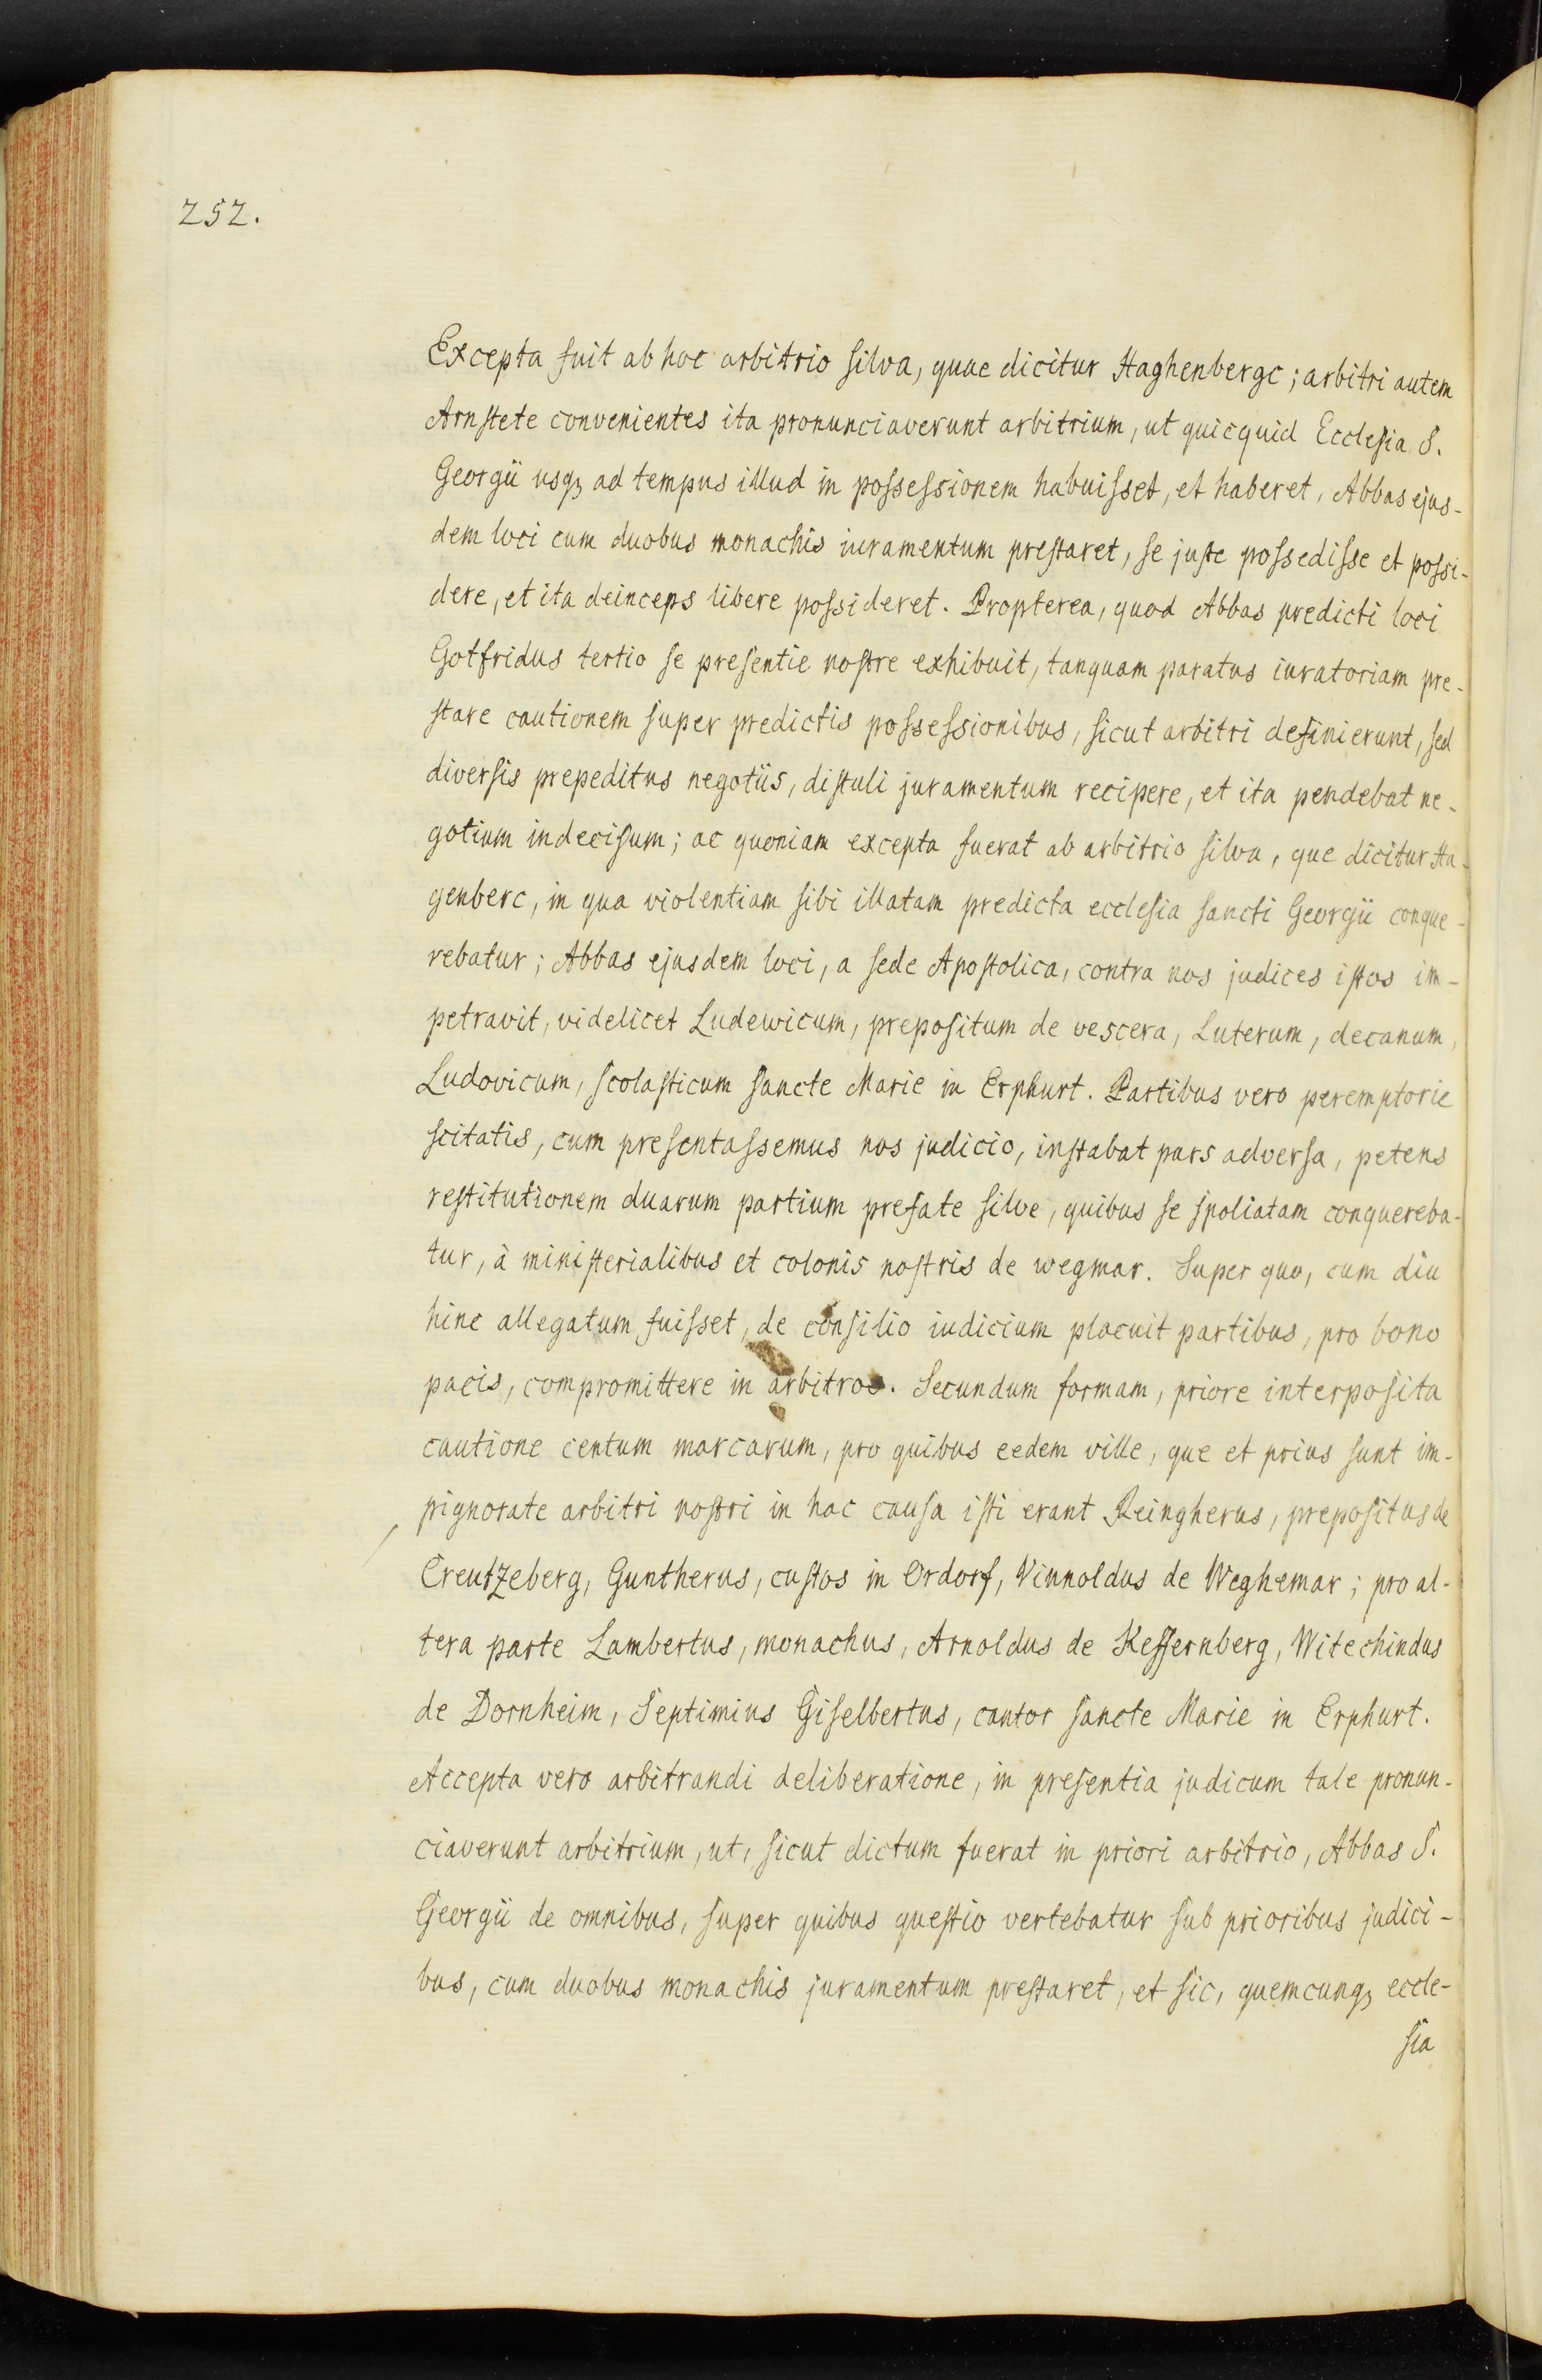 252.
Excepta fuit ab hoc arbitrio silva, quae dicitur Haghenbergc; arbitri autem
Arnstete convenientes ita pronunciaverunt arbitrium, ut quicquid Ecclesia S.
Georgii usqꝫ ad tempus illud in possessionem habuisset, et haberet, Abbas ejus-
dem loci cum duobus monachis iuramentum prestaret, se juste possedisse et possi-
dere, et ita deinceps libere possideret. Propterea, quod Abbas predicti loci
Gotfridus tertio se presentie nostre exhibuit, tanquam paratus iuratoriam pre-
stare cautionem super predictis possessionibus, sicut arbitri definierunt, sed
diversis prepeditus negotiis, distuli juramentum recipere, et ita pendebat ne-
gotium indecisum; ac quoniam excepta fuerat ab arbitrio silva, que dicitur Ha-
genberc, in qua violentiam sibi illatam predicta ecclesia sancti Georgii conque-
rebatur; Abbas ejusdem loci, a sede Apostolica, contra nos judices istos im-
petravit, videlicet Ludewicum, prepositum de vescera, Luterum, decanum,
Ludovicum, scolasticum sancte Marie in Erphurt. Partibus vero peremptorie
scitatis, cum presentassemus nos judicio, instabat pars adversa, petens
restitutionem duarum partium prefate silve, quibus se spoliatam conquereba-
tur, à ministerialibus et colonis nostris de wegmar. Super quo, cum diu
hinc allegatum fuisset, de consilio iudicium placuit partibus, pro bono
pacis, compromittere in arbitros. Secundum formam, priore interposita
cautione centum marcarum, pro quibus eedem ville, que et prius sunt im-
pignorate arbitri nostri in hac causa isti erant Reingherus, prepositus de
Creutzeberg, Guntherus, custos in Ordorf, Vinnoldus de Weghemar; pro al-
tera parte Lambertus, monachus, Arnoldus de Keffernberg, Witechindus
de Dornheim, Septimius Giselbertus, cantor sancte Marie in Erphurt.
Accepta vero arbitrandi deliberatione, in presentia judicum tale pronun-
ciaverunt arbitrium, ut, sicut dictum fuerat in priori arbitrio, Abbas S.
Georgii de omnibus, super quibus questio vertebatur sub prioribus judici-
bus, cum duobus monachis juramentum prestaret, et sic, quemcunqꝫ eccle-
sia